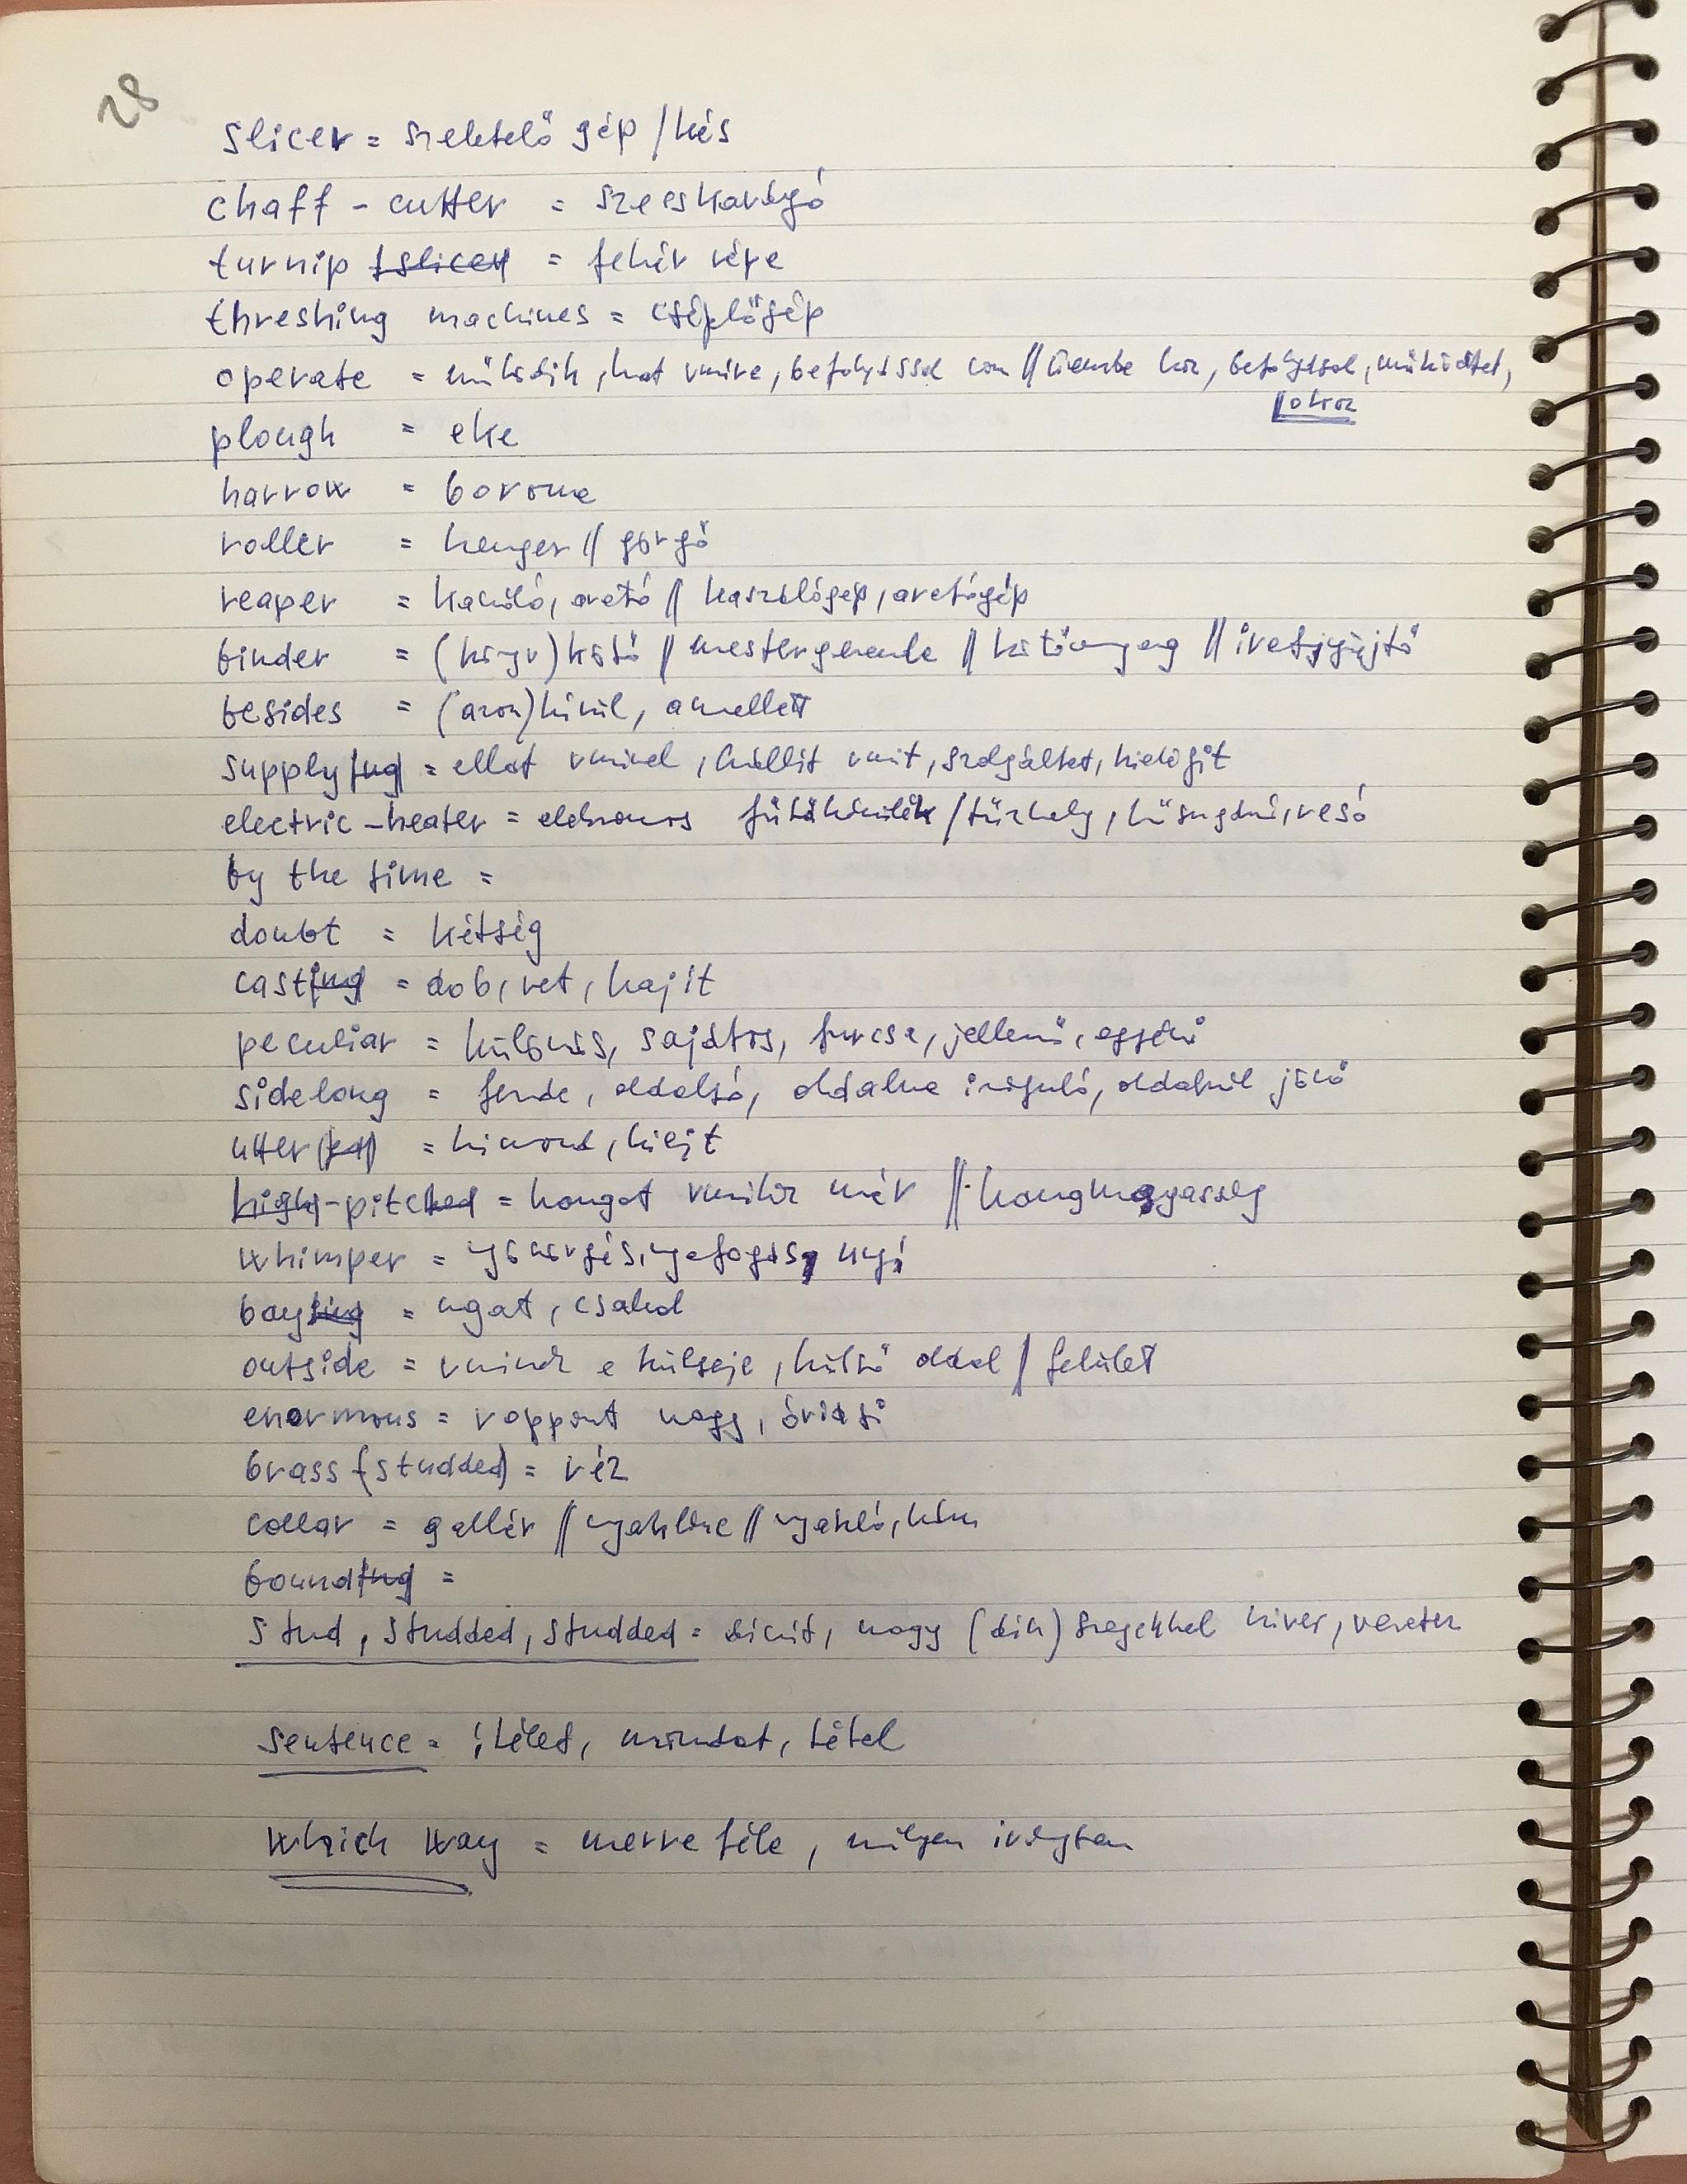 28
slicer = szeletelő gép / kés
chaff-cutter = szecskavágó
turnip (slicer) = fehér répa
threshing machines = cséplőgép
operate = működik, hat vmire, befolyással van // üzembe hoz, befolyásol, működtet,
okoz
plough = eke
harrow = borona
roller = henger // görgő
reaper = kaszáló, arató // kaszálógép, aratógép
binder = (könyv)kötő // mestergerenda // kötőanyag // iratgyűjtő
besides = (azon)kívül, amellett
supply(ing) = ellát vmivel, kiállít vmit, szolgáltat, kielégít
electric-heater = elektromos fűtőkészülék / tűzhely, hősugárzó, rezsó
by the time =
doubt = kétség
casting = dob, vet, hajít
peculiar = különös, sajátos, furcsa, jellemző, egyéni
sidelong = ferde, oldalsó, oldalra irányuló, oldalról jövő
utter(ed) = kimond, kiejt
high-pitched = hangot vmihez mér // hangmagasság
whimper = nyöszörgés, nyafogás, nyí
baying = ugat, csahol
outside = vminek a külseje, külső oldal / felület
enormous = roppant nagy, óriási
brass (studded) = réz
collar = gallér // nyaklánc // nyakló, hám
bounding =
stud, studded, studded = díszít, nagy (dísz) szegekkel kiver, veretez
sentence = ítélet, mondat, tétel
which way = merre féle, milyen irányban